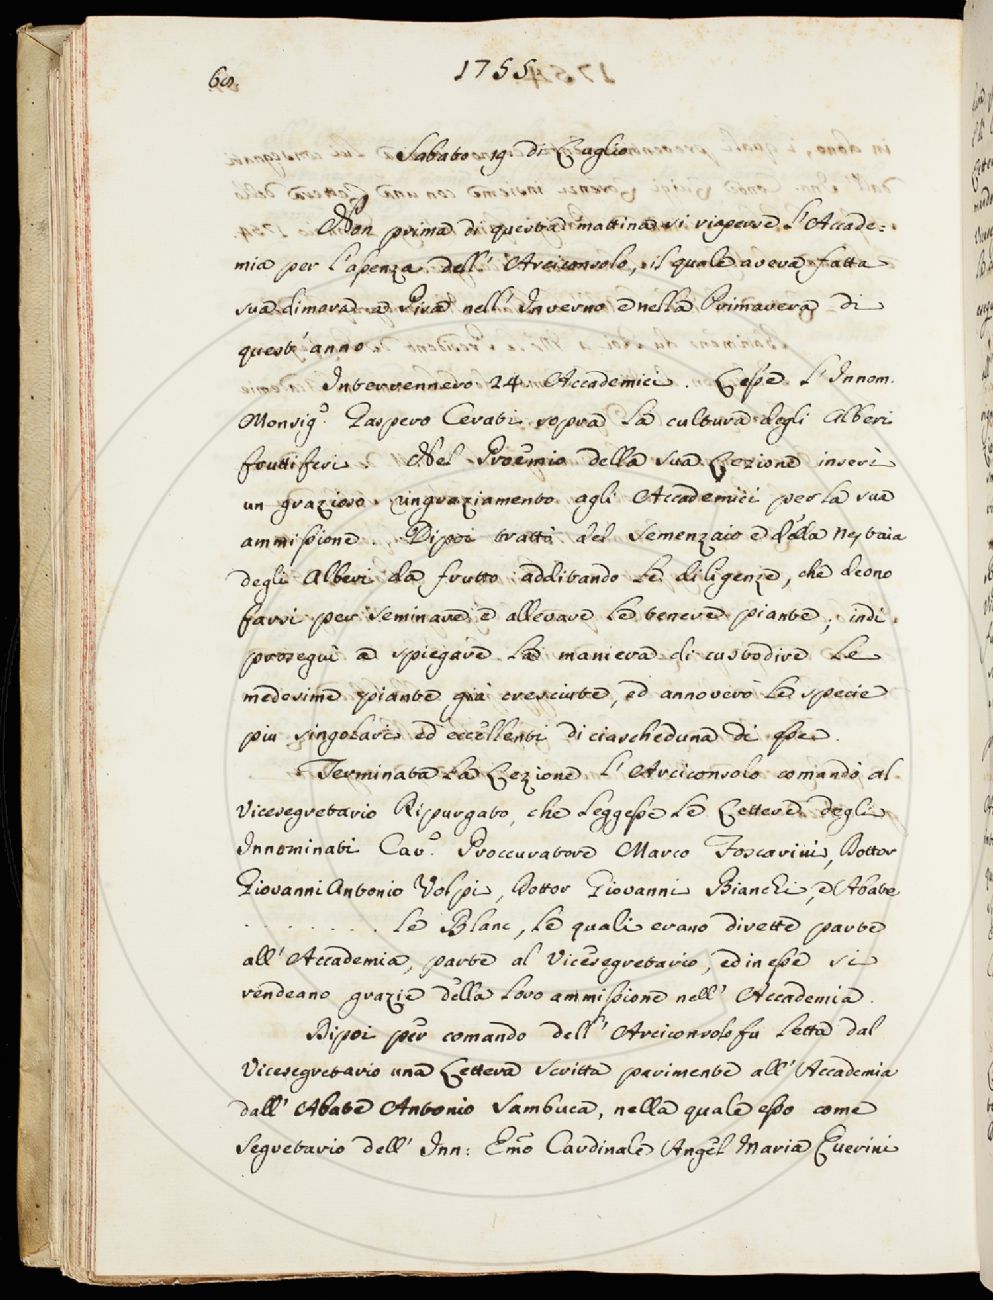 68.
1755.
Sabato 19 di Luglio
Non prima di questa mattina si riaperse l'Accade=
mia per l'assenza dell'Arciconsolo, il quale aveva fatta
sua dimora a Pisa nell'Inverno e nella Primavera di
quest'anno.
Intervennero 24 Accademici. Lesse l'Innom.
Monsig.e Gaspero Cerati sopra la cultura degli Alberi
fruttiferi. Nel Proemio della sua Lezione inserì
un grazioso ringraziamento agli Accademici per la sua
ammissione. Dipoi trattò del semenzaio e della Nestaia
degli Alberi da frutto additando le diligenze, che deono
farsi per seminare e allevare le tenere piante, indi
proseguì a spiegare la maniera di custodire le
medesime piante già cresciute, ed annoverò le specie
più singolari ed eccellenti di ciascheduna di esse.
Terminata la Lezione l'Arciconsolo comandò al
Vicesegretario Ripurgato, che leggesse le Lettere degli
Innominati Cav.e Proccuratore Marco Foscarini, Dottor
Giovanni Antonio Volpi, Dottor Giovanni Bianchi, e Abate
. . . . . . . . le Blanc, le quali erano dirette parte
all'Accademia, parte al Vicesegretario, ed in esse si
rendeano grazie della loro ammissione nell'Accademia.
Dipoi per comando dell'Arciconsolo fu letta dal
Vicesegretario una Lettera scritta parimente all'Accademia
dall'Abate Antonio Sambuca, nella quale esso come
Segretario dell'Inn: Emo Cardinale Angel Maria Querini